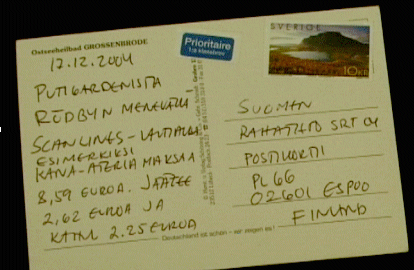 Ostseeheilbad GROSSENBRODE
17.12.2004
PUTTGARDENISTA
RÖDBYN MENEVÄLLÄ
SCANLINES-LAUTALLA
ESIMERKIKSI
KANA-ATERIA MAKSAA
8,59 EUROA. JÄÄTEE
2,62 EUROA JA
KAHVI 2.25 EUROA
Deutschland ist schön - wir zeigen es!
Prioritaire
1:a klassbrev
SVERIGE
10KR
SUOMEN
RAHATIETO SRT OY
POSTIKORTTI
PL 66
02601 ESPOO
FINLAND